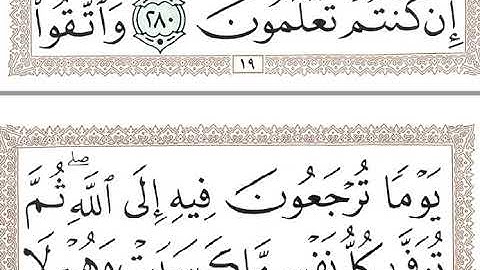 إِن كُنتُمْ تَعْلَمُونَ ٢٨٠ وَاتَّقُوا۟
١٩
يَوْمًا تُرْجَعُونَ فِيهِ إِلَى اللَّهِ ۖ ثُمَّ
تُوَفَّىٰ كُلُّ نَفْسٍ مَّا كَسَبَتْ وَهُمْ لَا